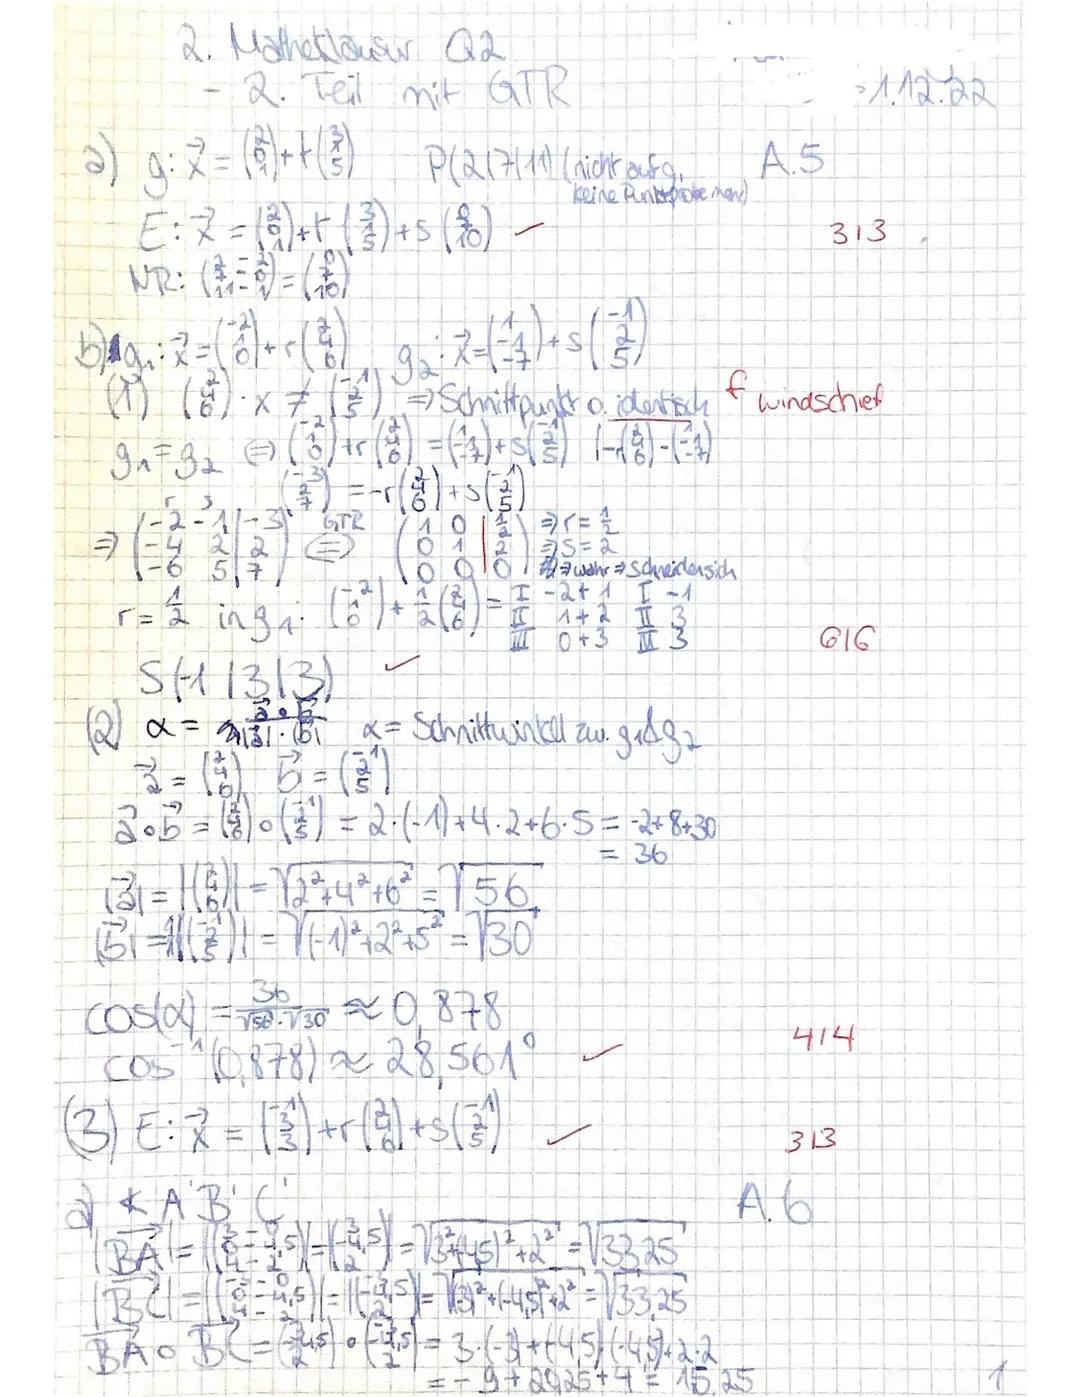 2. Matheklausur Q2
- 2. Teil mit GTR 1.12.22
a) g: x⃗ = (2 0 1) + r (3 1 5) P(2|7|11) (nicht auf g, A.5
keine Punktprobe mehr)
E: x⃗ = (2 0 1) + r (3 1 5) + s (0 7 10) ✓ 3/3
NR: (2-2 7-0 11-1) = (0 7 10)
b) g₁: x⃗ = (-2 1 0) + r (2 4 6) g₂: x⃗ = (1 -1 -7) + s (-1 2 5)
(1) (2 4 6) · x ≠ (-1 2 5) ⇒ Schnittpunkt o. identisch f windschief
g₁ = g₂ ⇔ (-2 1 0) + r (2 4 6) = (1 -1 -7) + s (-1 2 5) |-r (2 4 6) - (1 -1 -7)
(-3 2 7) = -r (2 4 6) + s (-1 2 5)
r s
⇒ (-2 -1 | -3 -4 2 | 2 -6 5 | 7) GTR ⇔ (1 0 | 1/2 0 1 | 2 0 0 | 0) ⇒ r = 1/2 ⇒ s = 2 ⇒ wahr ⇒ schneiden sich
r = 1/2 in g₁: (-2 1 0) + 1/2 (2 4 6) = I -2+1 I -1
II 1+2 II 3
III 0+3 III 3 6/6
S(-1|3|3) ✓
(2) α = a⃗∘b⃗ / |a⃗|·|b⃗| α = Schnittwinkel zw. g₁ & g₂
a⃗ = (2 4 6) b⃗ = (-1 2 5)
a⃗∘b⃗ = (2 4 6) ∘ (-1 2 5) = 2·(-1)+4·2+6·5 = -2+8+30
= 36
|a⃗| = |(2 4 6)| = √(2²+4²+6²) = √56
|b⃗| = |(-1 2 5)| = √((-1)²+2²+5²) = √30
cos(α) = 36 / √56·√30 ≈ 0,878
cos⁻¹(0,878) ≈ 28,561° ✓ 4/4
(3) E: x⃗ = (-1 3 3) + r (2 4 6) + s (-1 2 5) ✓ 3/3
a) ∢ A B C A.6
|BA⃗| = |(3-0 0-4,5 4-2)| = |(3 -4,5 2)| = √(3²+(-4,5)²+2²) = √33,25
|BC⃗| = |(-3-0 0-4,5 4-2)| = |(-3 -4,5 2)| = √((-3)²+(-4,5)²+2²) = √33,25
BA⃗ ∘ BC⃗ = (3 -4,5 2) ∘ (-3 -4,5 2) = 3·(-3)+(-4,5)·(-4,5)+2·2
= -9+20,25+4 = 15,25 1